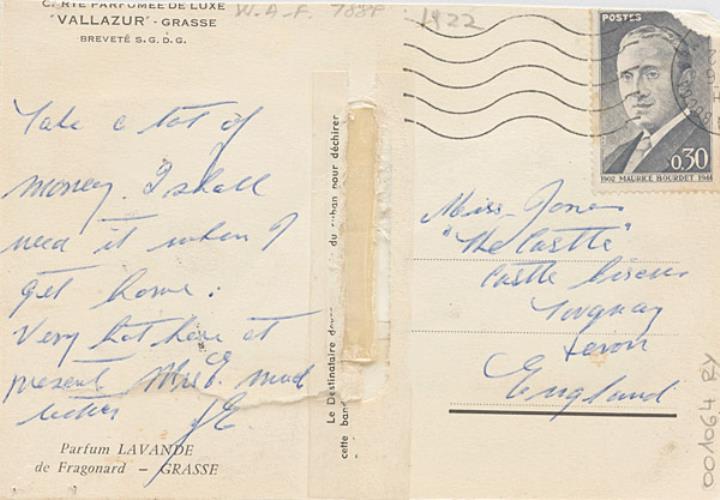 CARTE PARFUMÉE DE LUXE
"VALLAZUR" - GRASSE
BREVETÉ S.G.D.G.
W.A.F. 788P
1922
POSTES
0.30
1902 MAURICE BOURDET 1944
Take a lot of
money. I shall
need it when I
get home.
Very hot here at
present Mrs E. much
better JE
Parfum LAVANDE
de Fragonard - GRASSE
Le Destinataire
du ruban pour déchirer
cette
Miss Jones
"The Castle"
Castle
Torquay
Devon
England
001064 RY